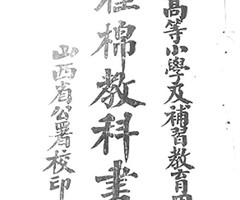 高等小學及補習教育用
棉教科書
山西省公署校印